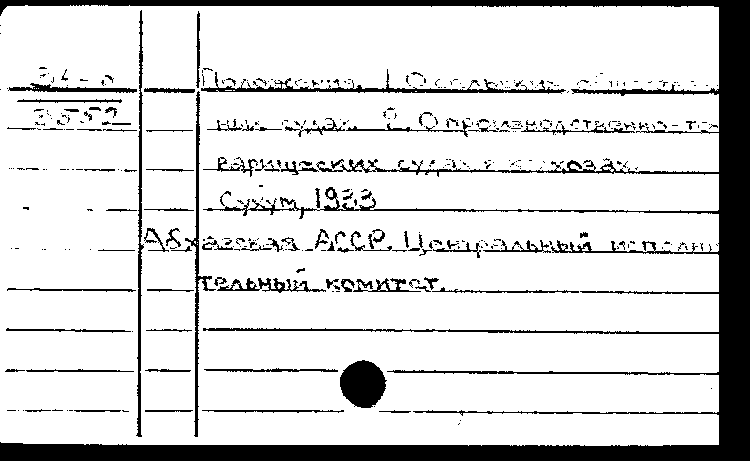 34-
3552
Положения. 1 О сельских обществен
ных судах. 2. О производственно-то
варищеских судах в колхозах.
Сухум, 1933
Абхазская АССР. Центральный исполни
тельный комитет.